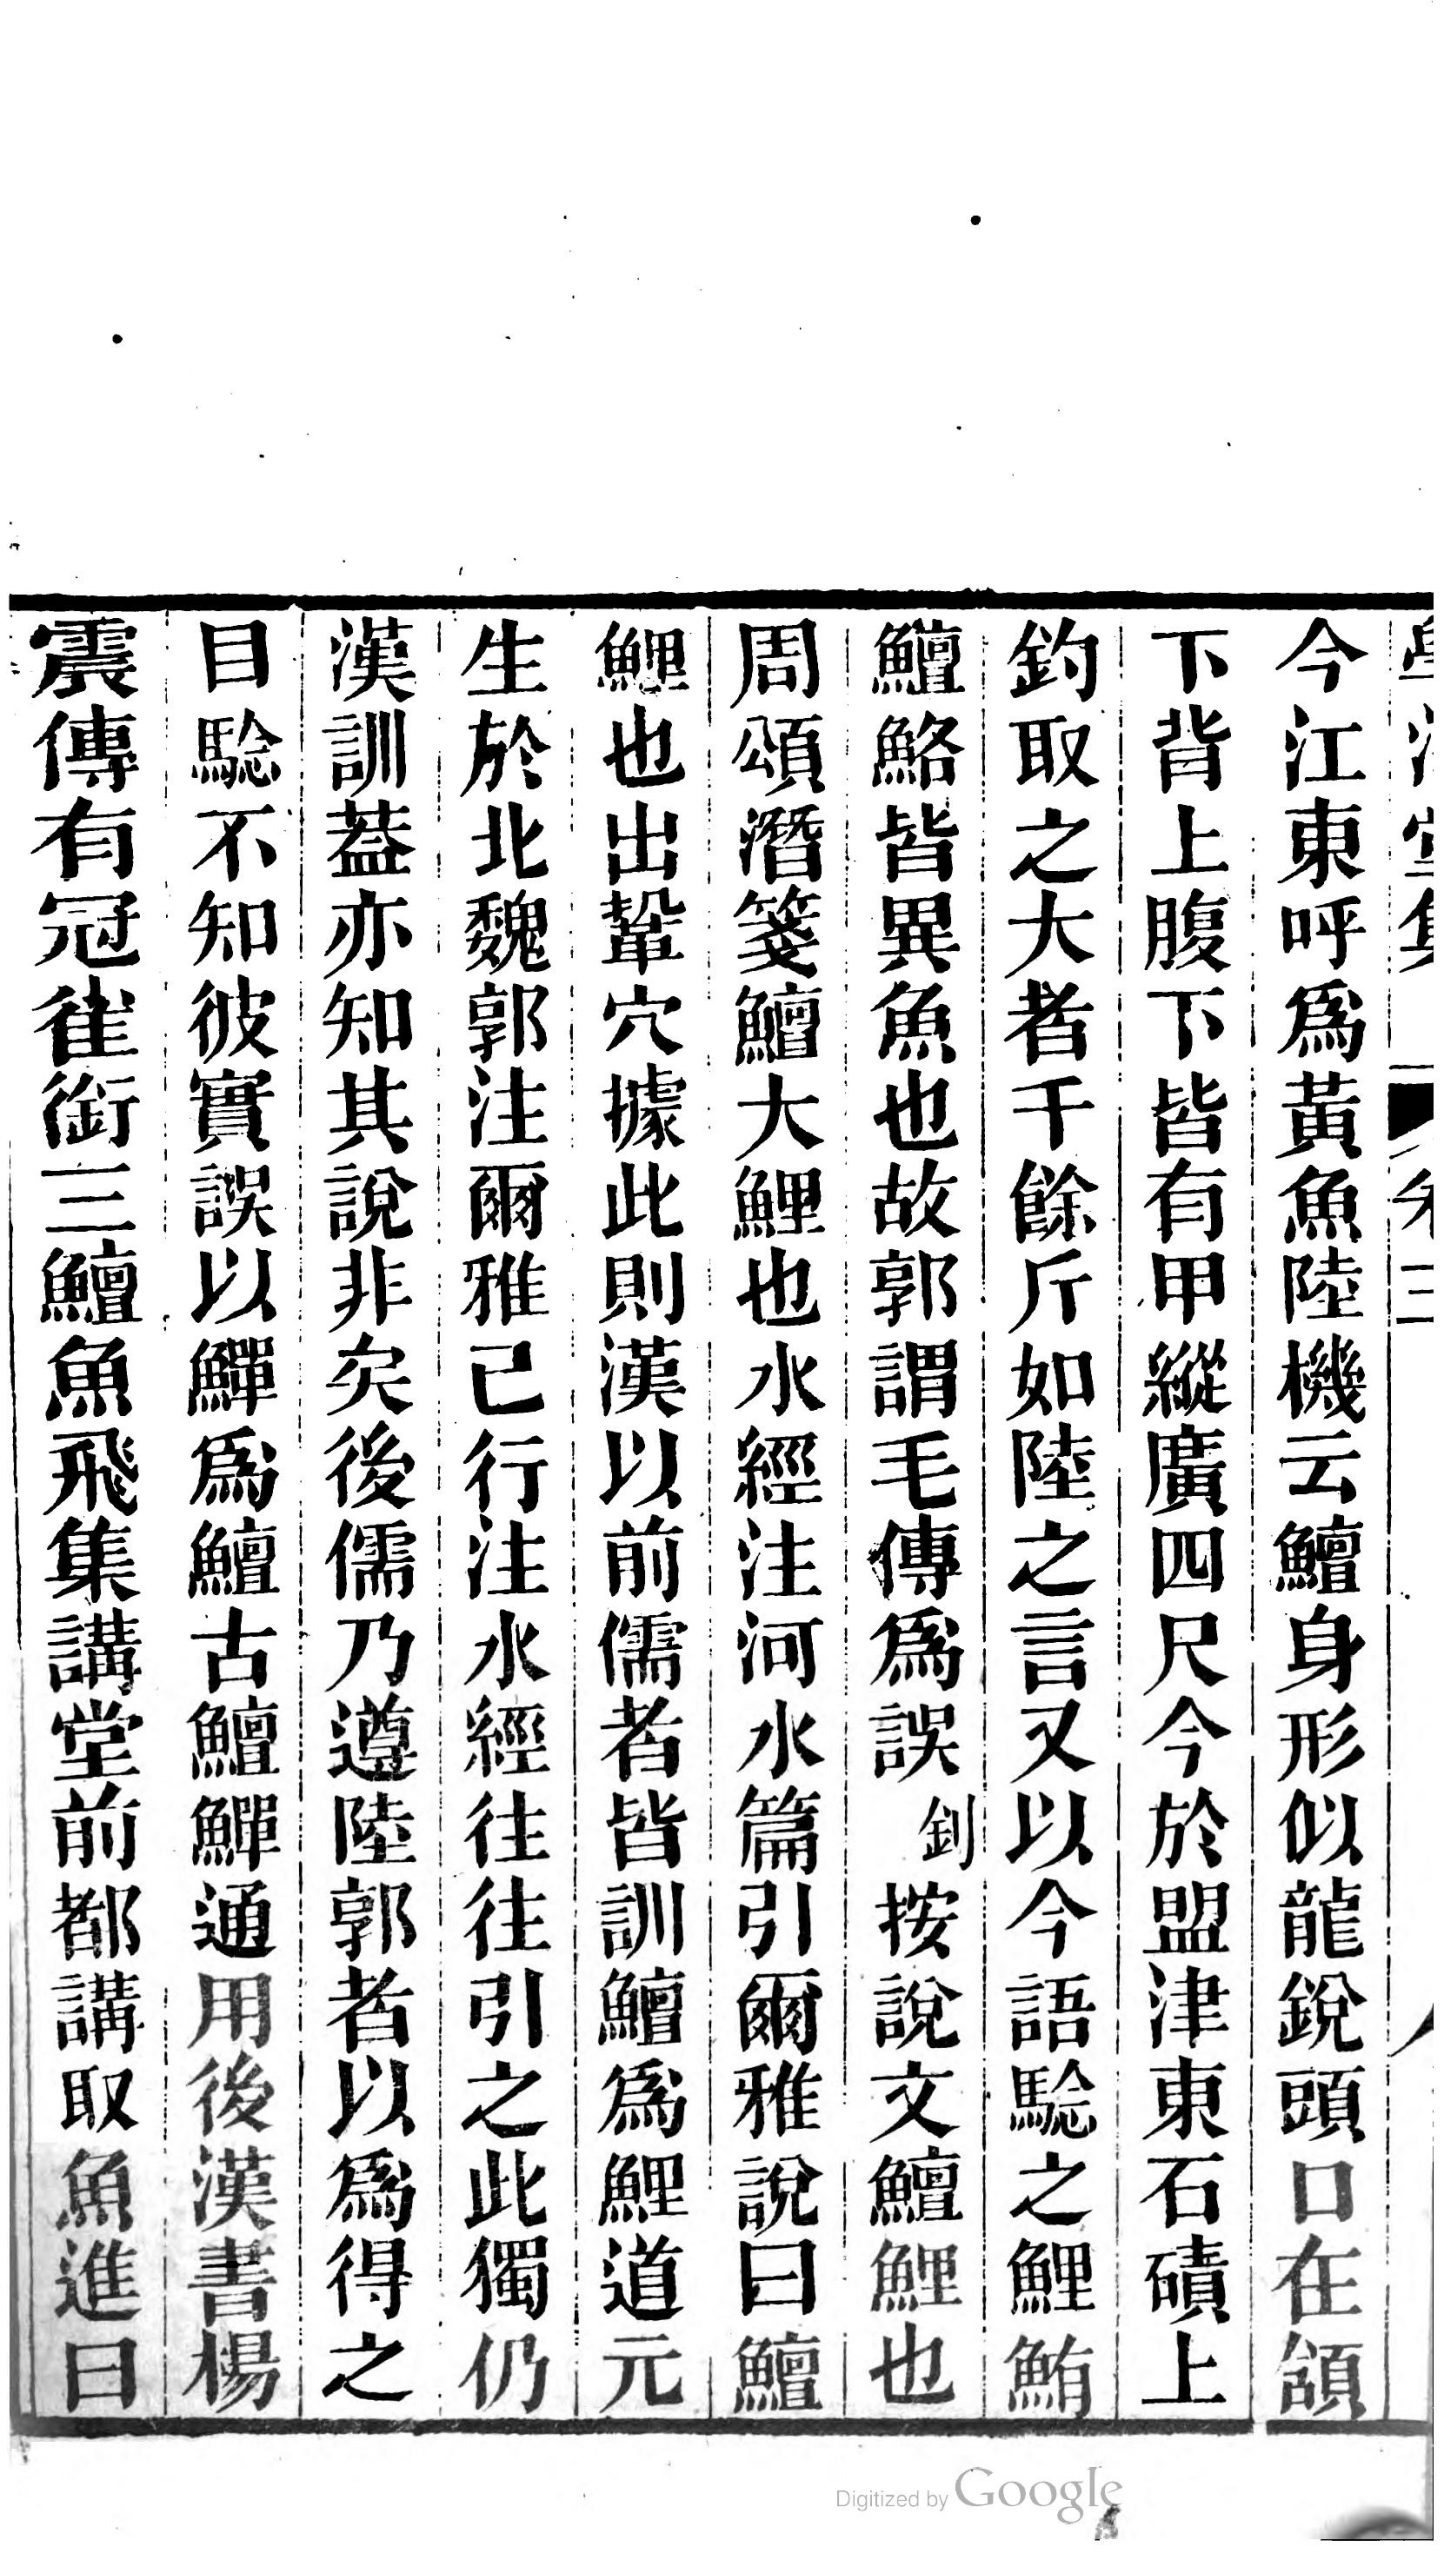 今江東呼爲黃魚陸機云鱣身形似龍銳頭口在頷
下背上腹下皆有甲縱廣四尺今於盟津東石磧上
釣取之大者千餘斤如陸之言又以今語騐之鯉鮪
鱣鮥皆異魚也故郭謂毛傳爲誤釗按說文鱣鯉也
周頌潛箋鱣大鯉也水經注河水篇引爾雅說曰鱣
鯉也出鞏穴據此則漢以前儒者皆訓鱣爲鯉道元
生於北魏郭注爾雅已行注水經往往引之此獨仍
漢訓葢亦知其說非矣後儒乃遵陸郭者以爲得之
目騐不知彼實誤以鱓爲鱣古鱣鱓通用後漢書楊
震傳有冠雀銜三鱣魚飛集講堂前都講取魚進曰
Digitized by Google